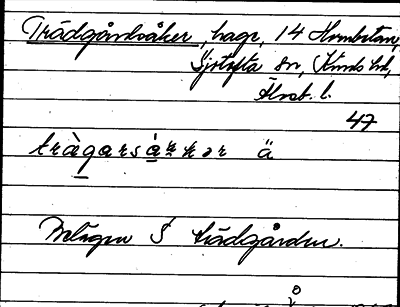 Trädgårdsåker, hage, 14 Humbetorp,
Sjötofta sn, Kinds hd,
Älvsb. l.
47
trägarsåkkər ä
Belägen S trädgården.